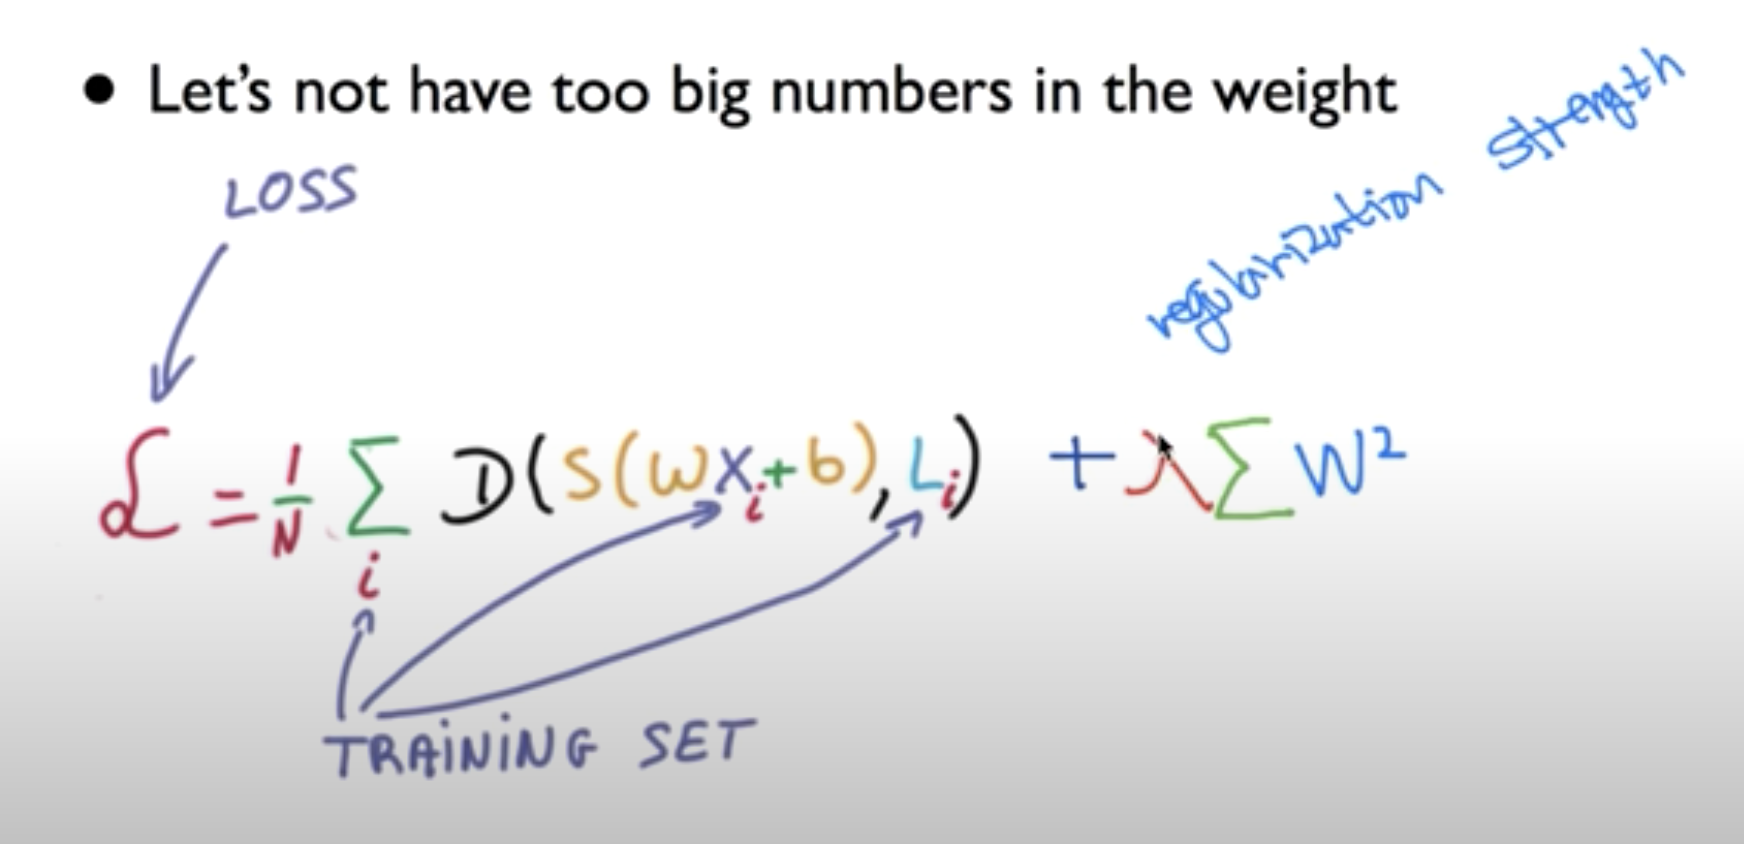 ● Let's not have too big numbers in the weight
regularization strength
LOSS
ℒ = 1/N Σ_i D(S(wx_i+b), L_i) + λΣW²
TRAINING SET